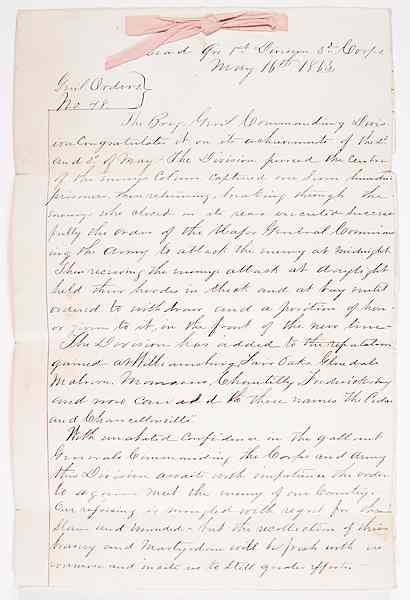 Head Qrs 1st Division 3d Corps
May 16th 1863
Genl Orders
No 48
The Brig. Genl Commanding Divis-
ion Congratulates it on its achievements of the 2d
and 3d of May. The Division pierced the Center
of the enemys Column captured one hundred
prisoners, then returning, breaking through the
enemy who closed in its rear executed success
fully the order of the Major General Command
ing the Army to attack the enemy at midnight.
Then receiving the enemys attack at daylight
held their hordes in check and at bay until
ordered to withdraw and a position of hon-
or given to it, in the front of the new line
The Division has added to the reputation
gained at Williamsburg Fair Oaks Glendale
Malvern, Manassas, Chantilly Fredericksburg
and now can add to those names The Cedar
and Chancellorsville
With unabated Confidence in the gallant
Generals Commanding the Corps and Army
this Division awaits with impatience the order
to again meet the enemy of our Country.
Our rejoicing is mingled with regret for the
Slain and wounded - but the recollection of their
bravery and Martyrdom will be fresh with us
and incite us to still greater efforts